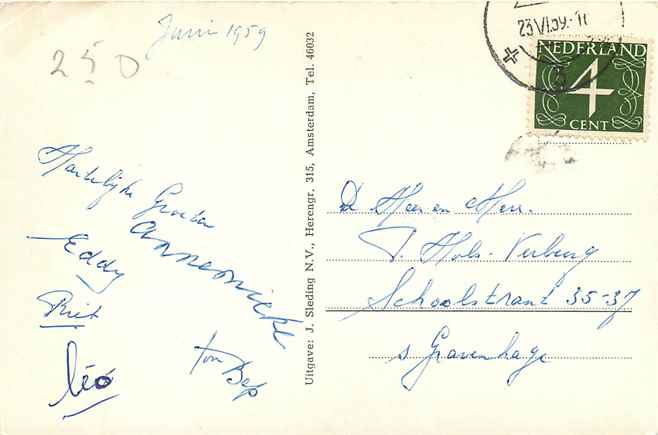 Juni 1959
250
23.VI.59.-11
NEDERLAND
4
CENT
Hartelijke Groeten
Annemieke
Eddy
Riet
ton Bep
léo
Uitgave: J. Sleding N.V., Herengr. 315, Amsterdam, Tel. 46032
D Heer en Mevr.
P. Hols-Verburg
Schoolstraat 35-37
s Gravenhage